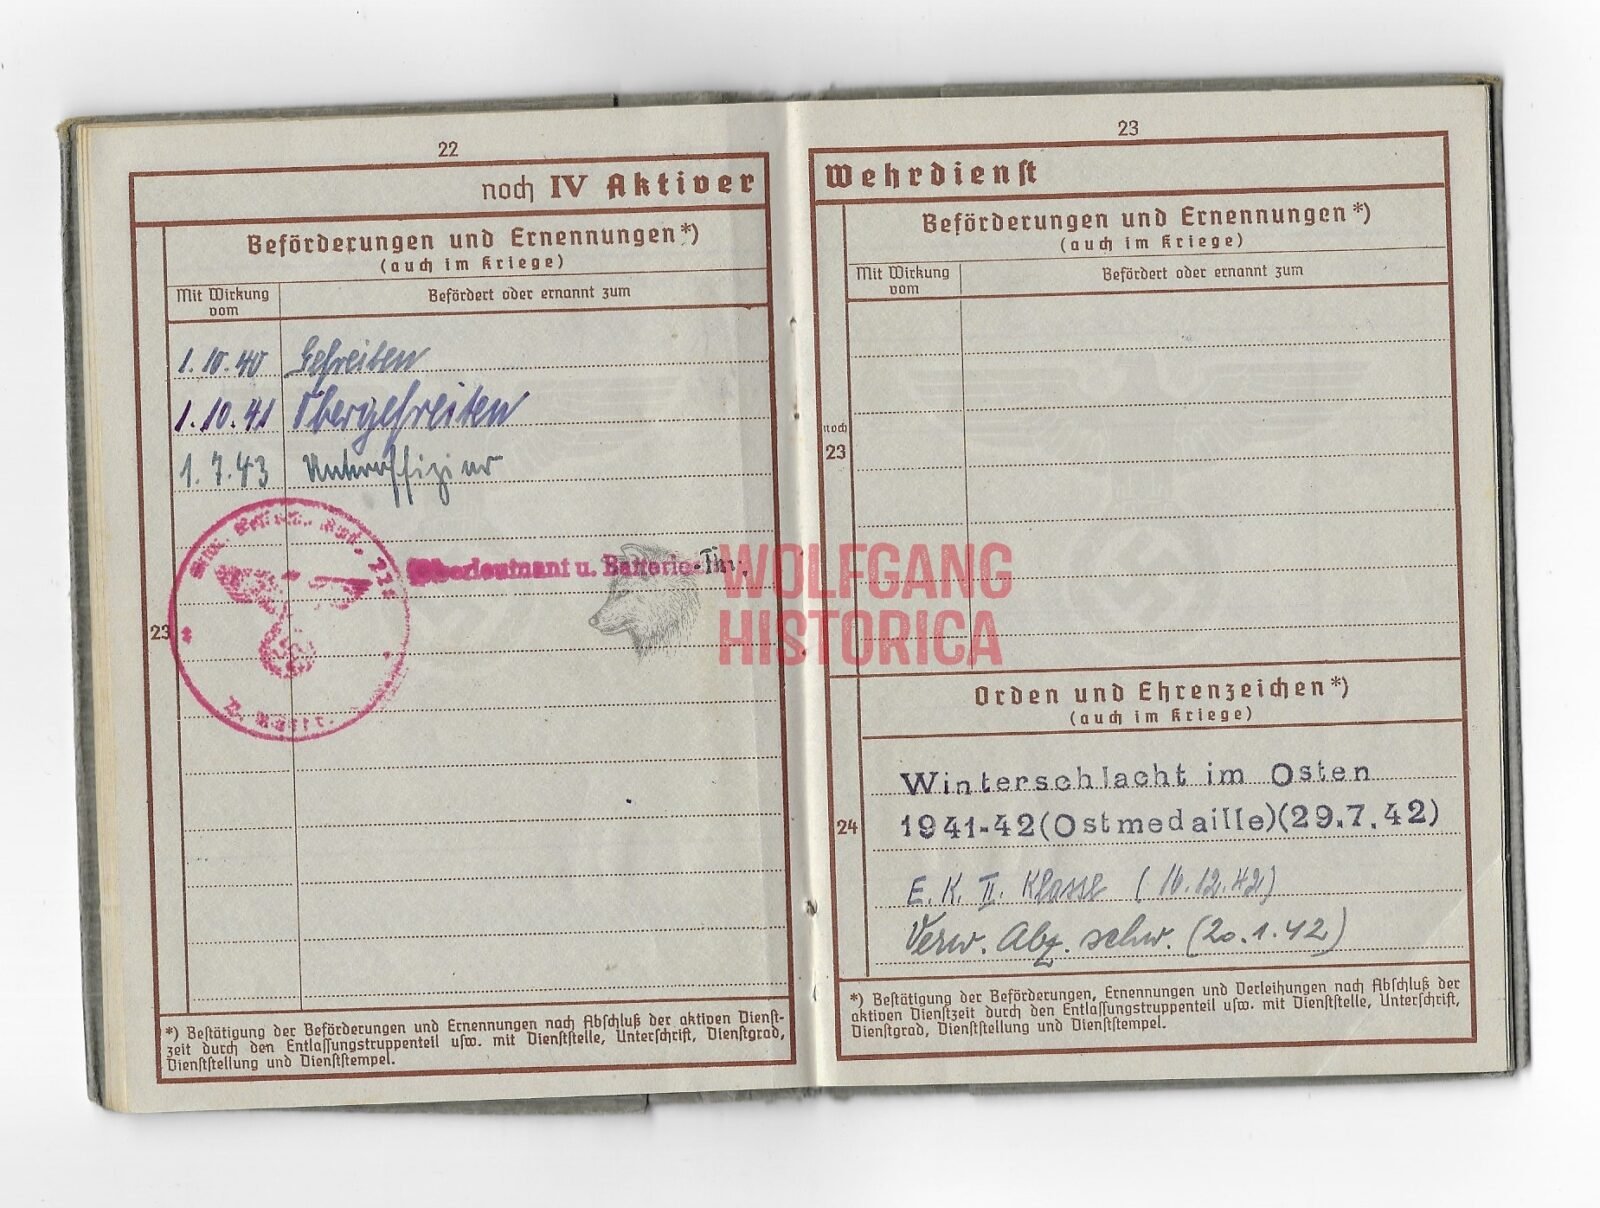 22
noch IV Aktiver
Beförderungen und Ernennungen*)
(auch im Kriege)
Mit Wirkung vom
Befördert oder ernannt zum
1.10.40 Gefreiten
1.10.41 Obergefreiten
1.7.43 Unteroffizier
Oberleutnant u. Batterie-
23
*) Bestätigung der Beförderungen und Ernennungen nach Abschluß der aktiven Dienst-
zeit durch den Entlassungstruppenteil usw. mit Dienststelle, Unterschrift, Dienstgrad,
Dienststellung und Dienststempel.
23
Wehrdienst
Beförderungen und Ernennungen*)
(auch im Kriege)
Mit Wirkung vom
Befördert oder ernannt zum
noch
23
WOLFGANG
HISTORICA
Orden und Ehrenzeichen*)
(auch im Kriege)
Winterschlacht im Osten
24
1941-42(Ostmedaille)(29.7.42)
E.K. II. Klasse (10.12.42)
Verw. Abz. schw. (20.1.42)
*) Bestätigung der Beförderungen, Ernennungen und Verleihungen nach Abschluß der
aktiven Dienstzeit durch den Entlassungstruppenteil usw. mit Dienststelle, Unterschrift,
Dienstgrad, Dienststellung und Dienststempel.